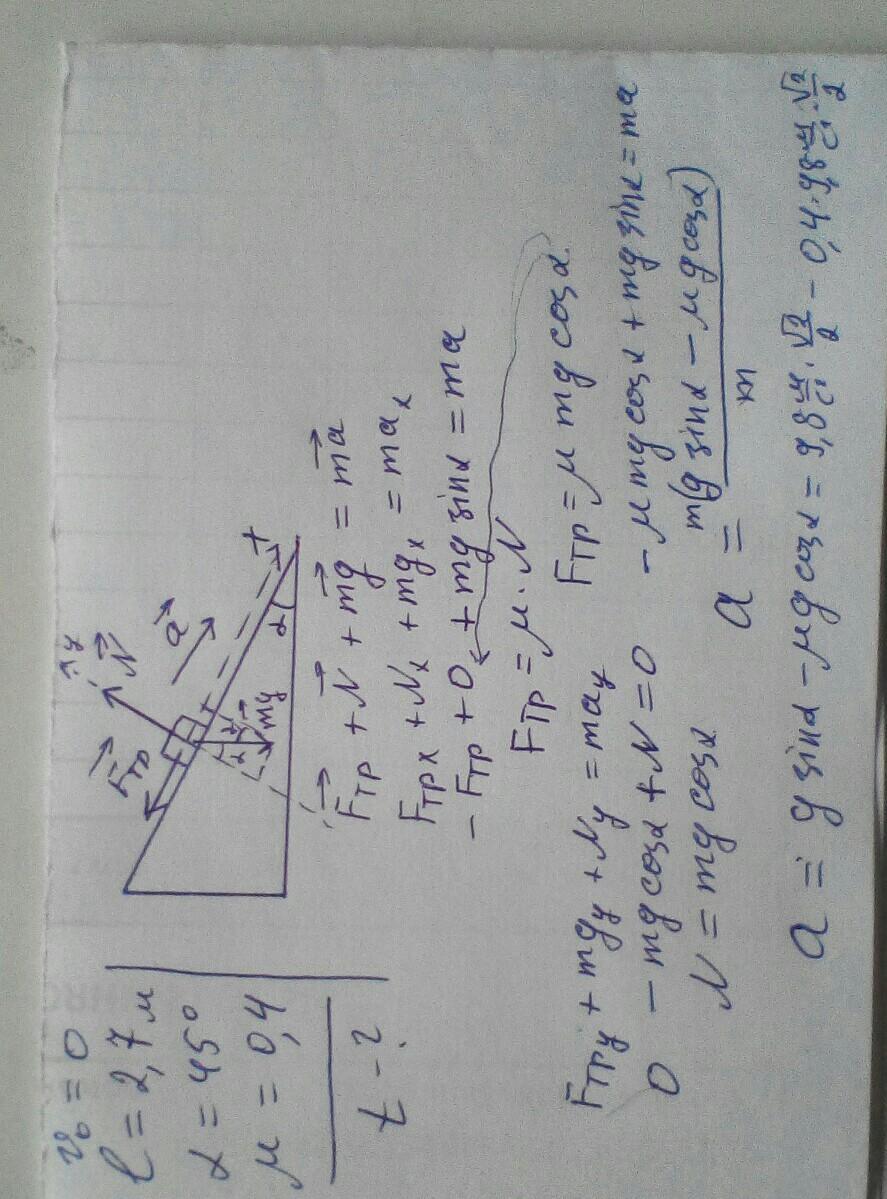 v₀ = 0
l = 2,7 м
α = 45°
μ = 0,4
t - ?
y
N⃗
F⃗тр
a⃗
α
mg⃗
α
x
F⃗тр + N⃗ + mg⃗ = ma⃗
Fтрx + Nx + mgx = max
- Fтр + 0 + mg sinα = ma
Fтр = μ · N
Fтрy + mgy + Ny = may
Fтр = μ mg cosα
0 - mg cosα + N = 0
- μ mg cosα + mg sinα = ma
N = mg cosα
a = m(g sinα - μg cosα) / m
a = g sinα - μg cosα = 9,8 м/с² · √2/2 - 0,4 · 9,8 м/с² · √2/2